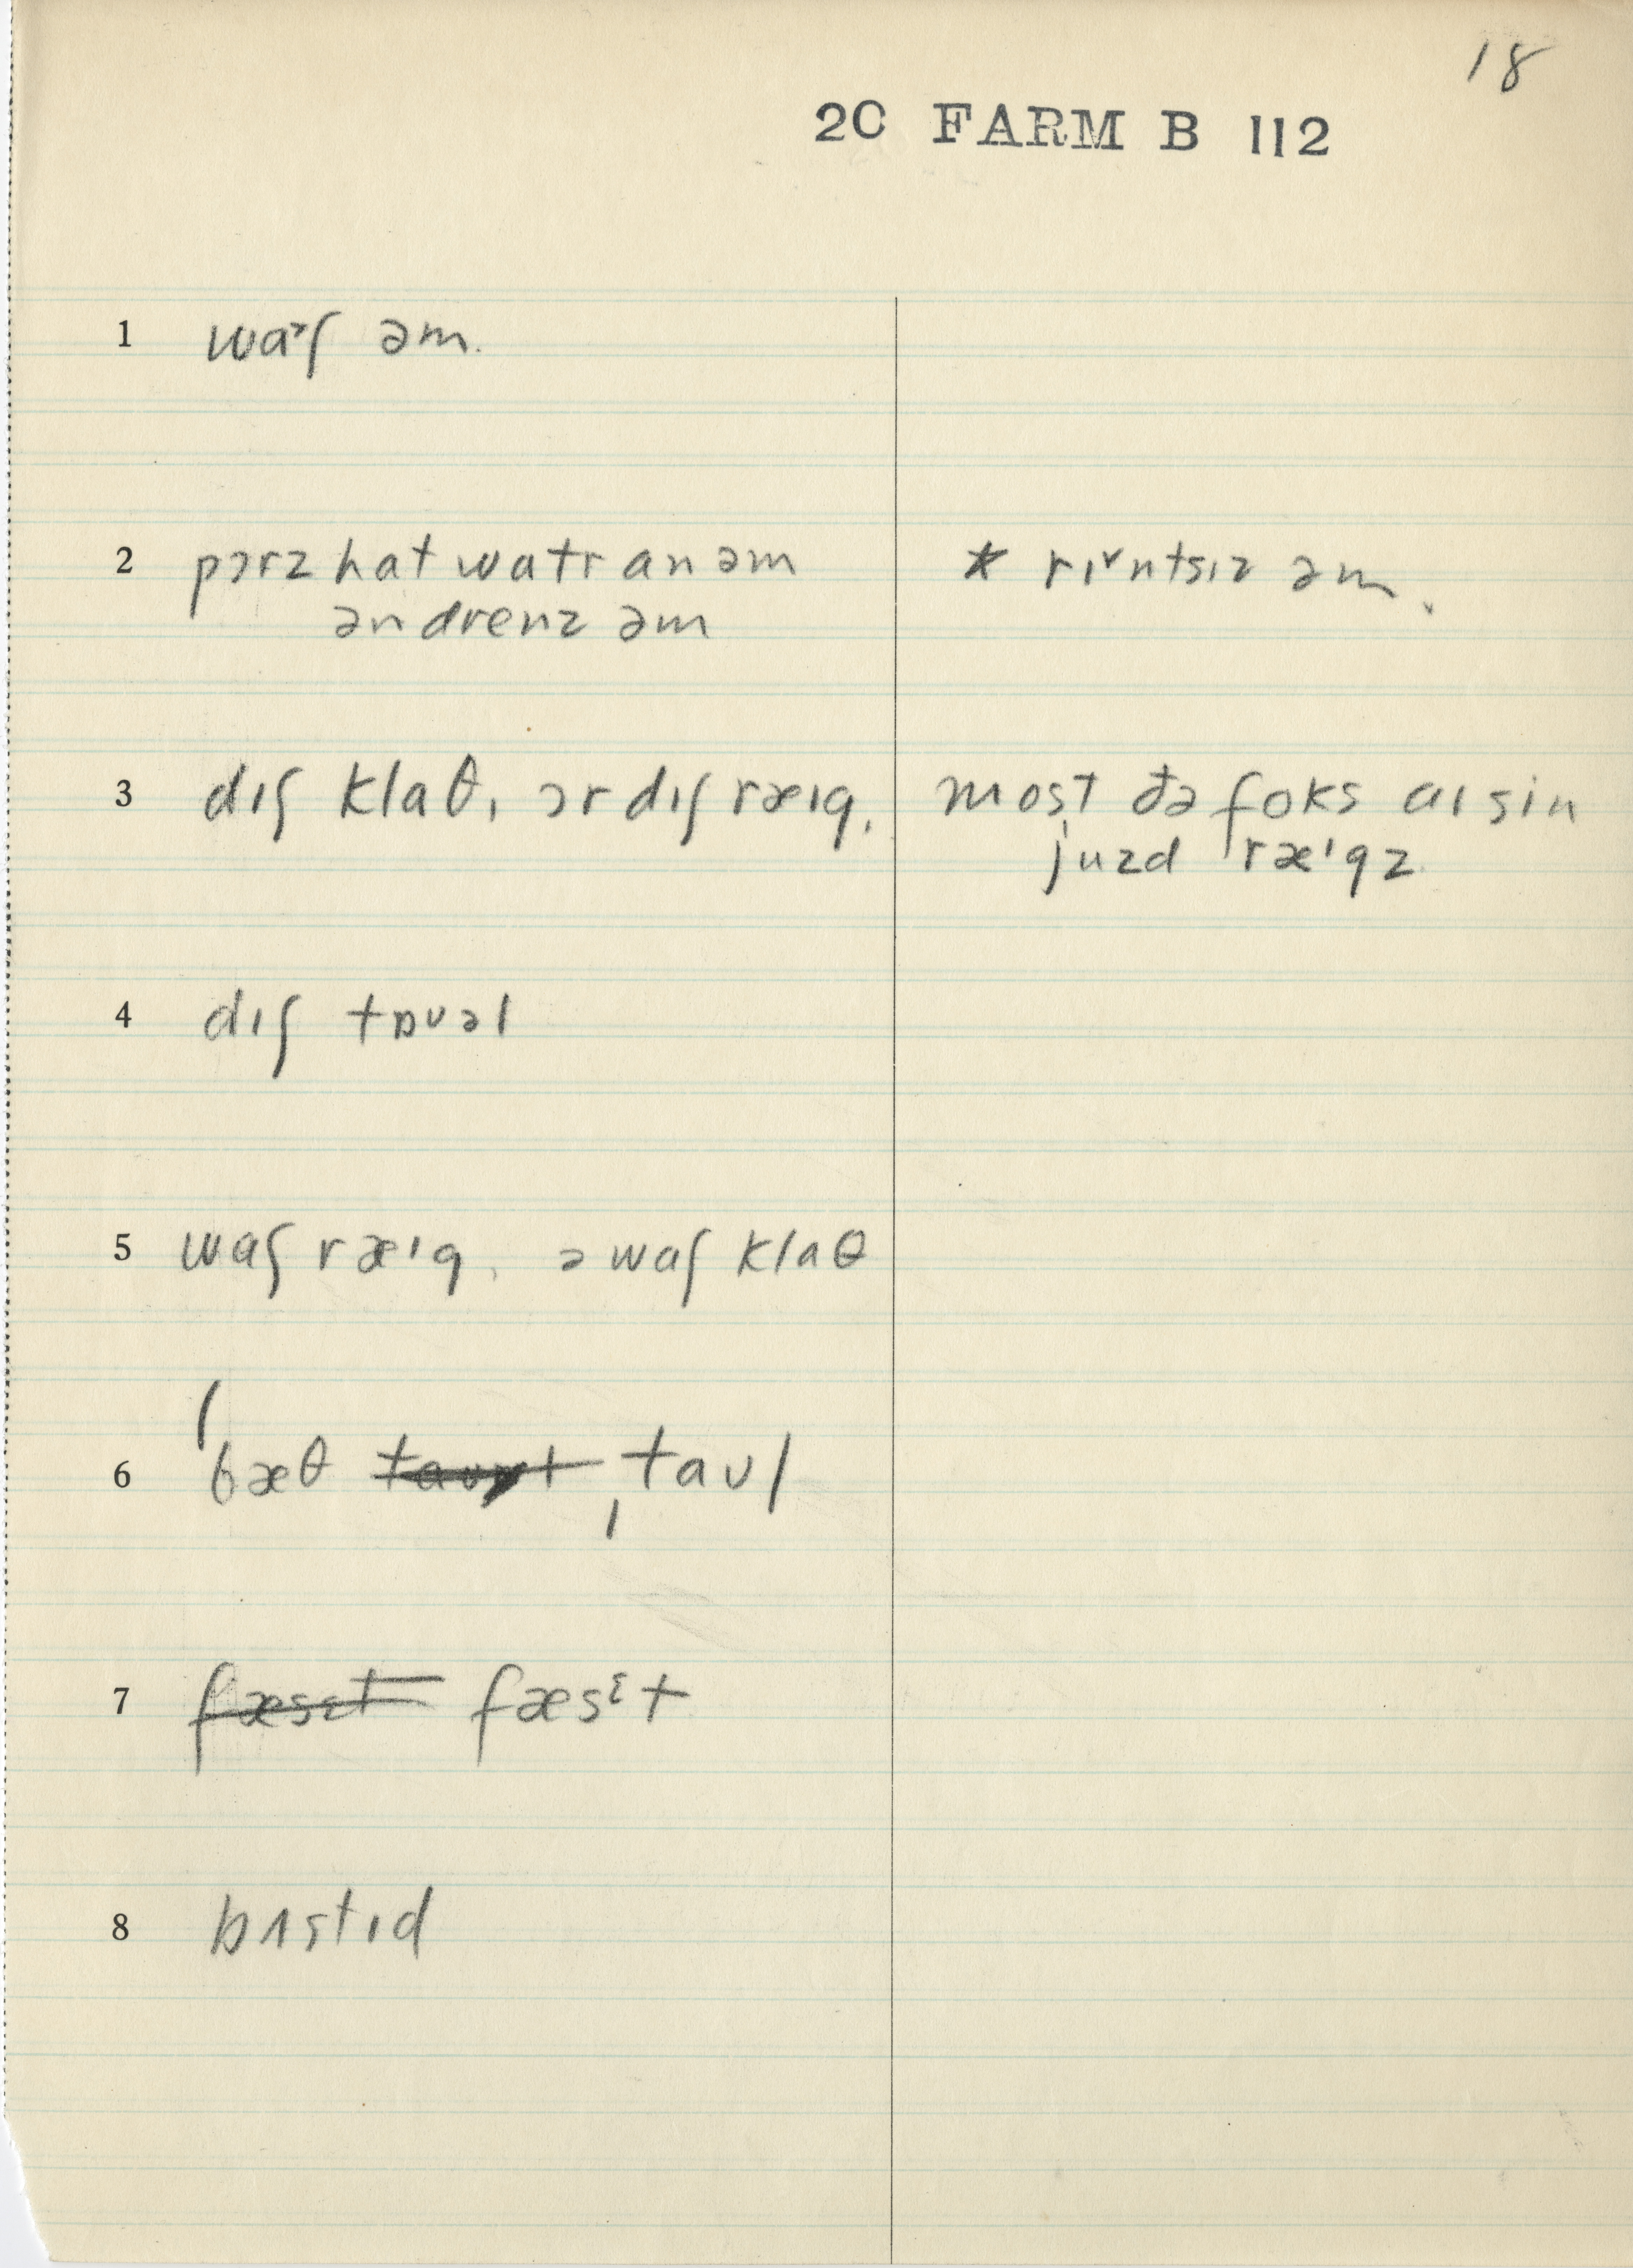 18
2C FARM B 112
1 wa˃ʃ əm.
2 pɔrz hat watr an əm * rɪ˅ntsɪz əm.
ən drenz əm
3 dɪʃ klaθ, ɔr dɪʃ ræɪg, most ðə foks aɪ sin
juzd ræɪgz
4 dɪʃ tɒʊəl
5 waʃ ræɪg, ə waʃ klaθ
6 ˈbæθ ˌtaʊl
7 fæsɛt fæsɪt
8 bʌstɪd